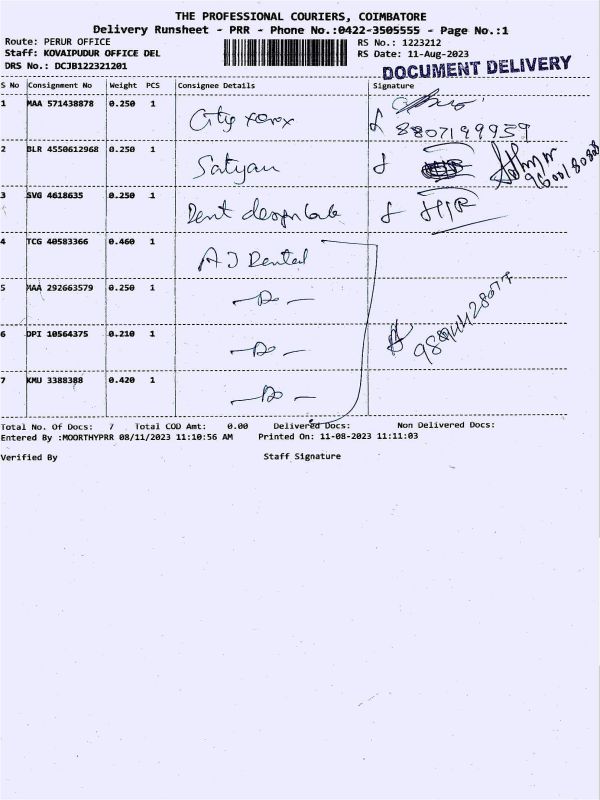 THE PROFESSIONAL COURIERS, COIMBATORE
Delivery Runsheet - PRR - Phone No.:0422-3505555 - Page No.:1
Route: PERUR OFFICE RS No.: 1223212
Staff: KOVAIPUDUR OFFICE DEL RS Date: 11-Aug-2023
DRS No.: DCJB122321201
DOCUMENT DELIVERY
S No Consignment No Weight PCS Consignee Details Signature
1 MAA 571438878 0.250 1 City xerox
8807199959
2 BLR 4550612968 0.250 1 Satyan
3 SVG 4618635 0.250 1 Dent
4 TCG 40583366 0.460 1 A J Dental
5 MAA 292663579 0.250 1 —Do—
6 DPI 10564375 0.210 1 —Do—
7 KMU 3388388 0.420 1 —Do—
Total No. Of Docs: 7 Total COD Amt: 0.00 Delivered Docs: Non Delivered Docs:
Entered By :MOORTHYPRR 08/11/2023 11:10:56 AM Printed On: 11-08-2023 11:11:03
Verified By Staff Signature